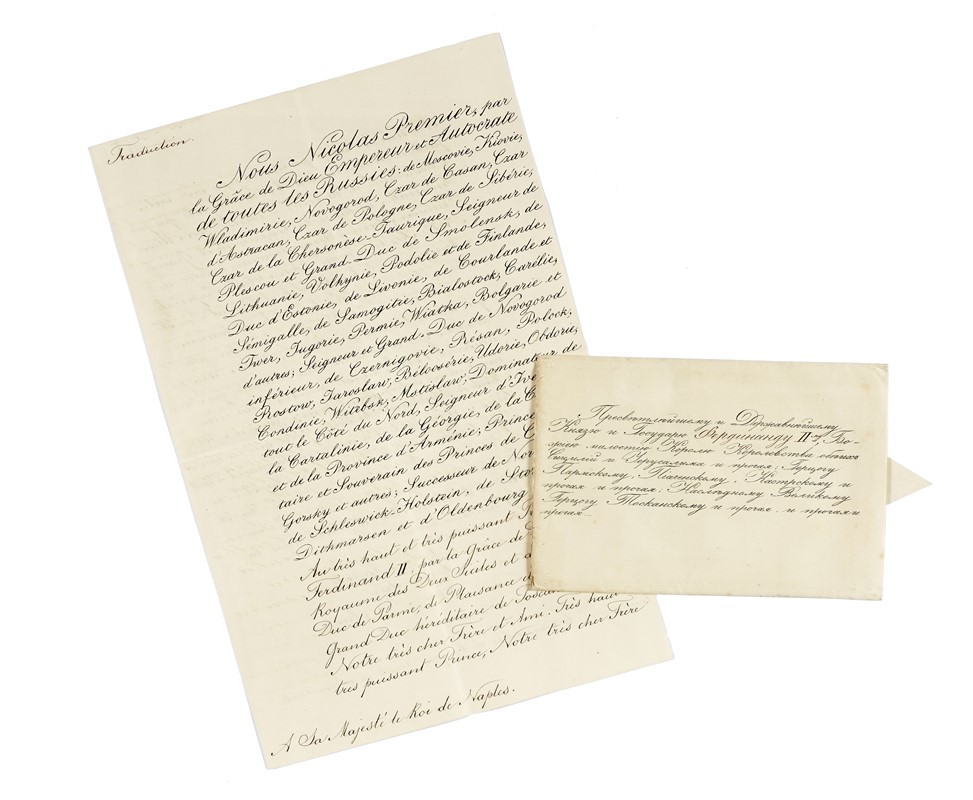 Traduction.
Nous Nicolas Premier, par
la Grâce de Dieu Empereur et Autocrate
de toutes les Russies: de Moscovie, Kiovie,
Wladimirie, Novogorod, Czar de Casan, Czar
d'Astracan, Czar de Pologne, Czar de Sibérie,
Czar de la Chersonèse-Taurique, Seigneur de
Plescou et Grand-Duc de Smolensk, de
Lithuanie, Volhynie, Podolie et de Finlande,
Duc d'Estonie, de Livonie, de Courlande et
Sémigalle, de Samogitie, Bialostock, Carélie,
Twer, Jugorie, Permie, Wiatka, Bolgarie et
d'autres; Seigneur et Grand-Duc de Novogorod
inférieur, de Czernigovie, Résan, Polock,
Rostow, Jaroslaw, Béloosérie, Udorie, Obdorie,
Condinie, Witebsk, Mstislaw, Dominateur de
tout le Côté du Nord, Seigneur d'Ive
la Cartalinie, de la Géorgie, de la C
et de la Province d'Arménie; Prince
taire et Souverain des Princes de C
Gorsky et autres; Successeur de Nor
de Schleswick-Holstein, de Sto
Dithmarsen et d'Oldenbourg
Au très haut et très puissant P
Ferdinand II. par la Grâce de
Royaume des Deux Siciles et d
Duc de Parme, de Plaisance d
Grand Duc héréditaire de Tosca
Notre très cher Frère et Ami. Très haut
très puissant Prince, Notre très cher Frère
A Sa Majesté le Roi de Naples.
Пресвѣтлѣйшему и Державнѣйшему
Князю и Государю Фердинанду II-му, Бо-
жіею милостію Королю Королевства обѣихъ
Сицилій и Іерусалима и прочая; Герцогу
Пармскому, Піаченскому, Кастрскому и
прочая и прочая; Наслѣдному Великому
Герцогу Тосканскому и прочая и прочая и
прочая.